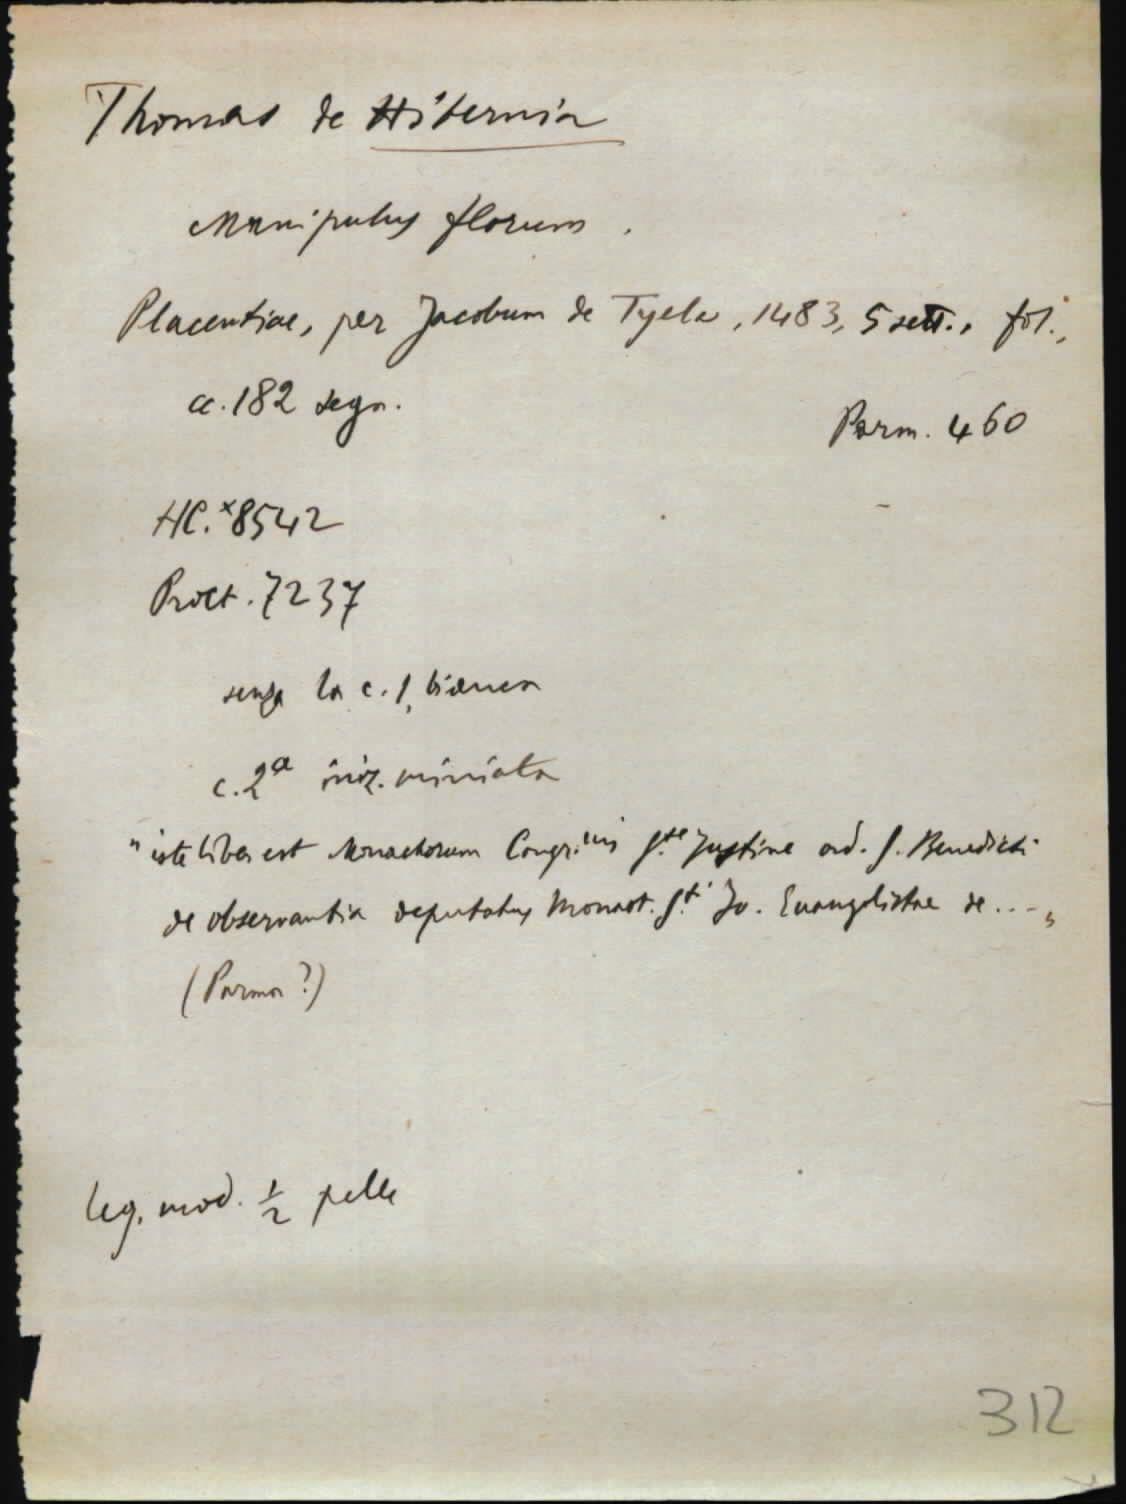 Thomas de Hibernia
Manipulus florum.
Placentiae, per Jacobum de Tyela, 1483, 5 sett., fol.,
cc. 182 segn.
Parm. 460
HC.*8542
Proct. 7237
senza la c. 1, bianca
c. 2ª iniz. miniata
"iste liber est Monachorum Congr.nis S.te Justine ord. S. Benedicti
de observantia deputatus Monast. S.ti Jo. Evangelistae de ...."
(Parma?)
leg. mod. ½ pelle
312